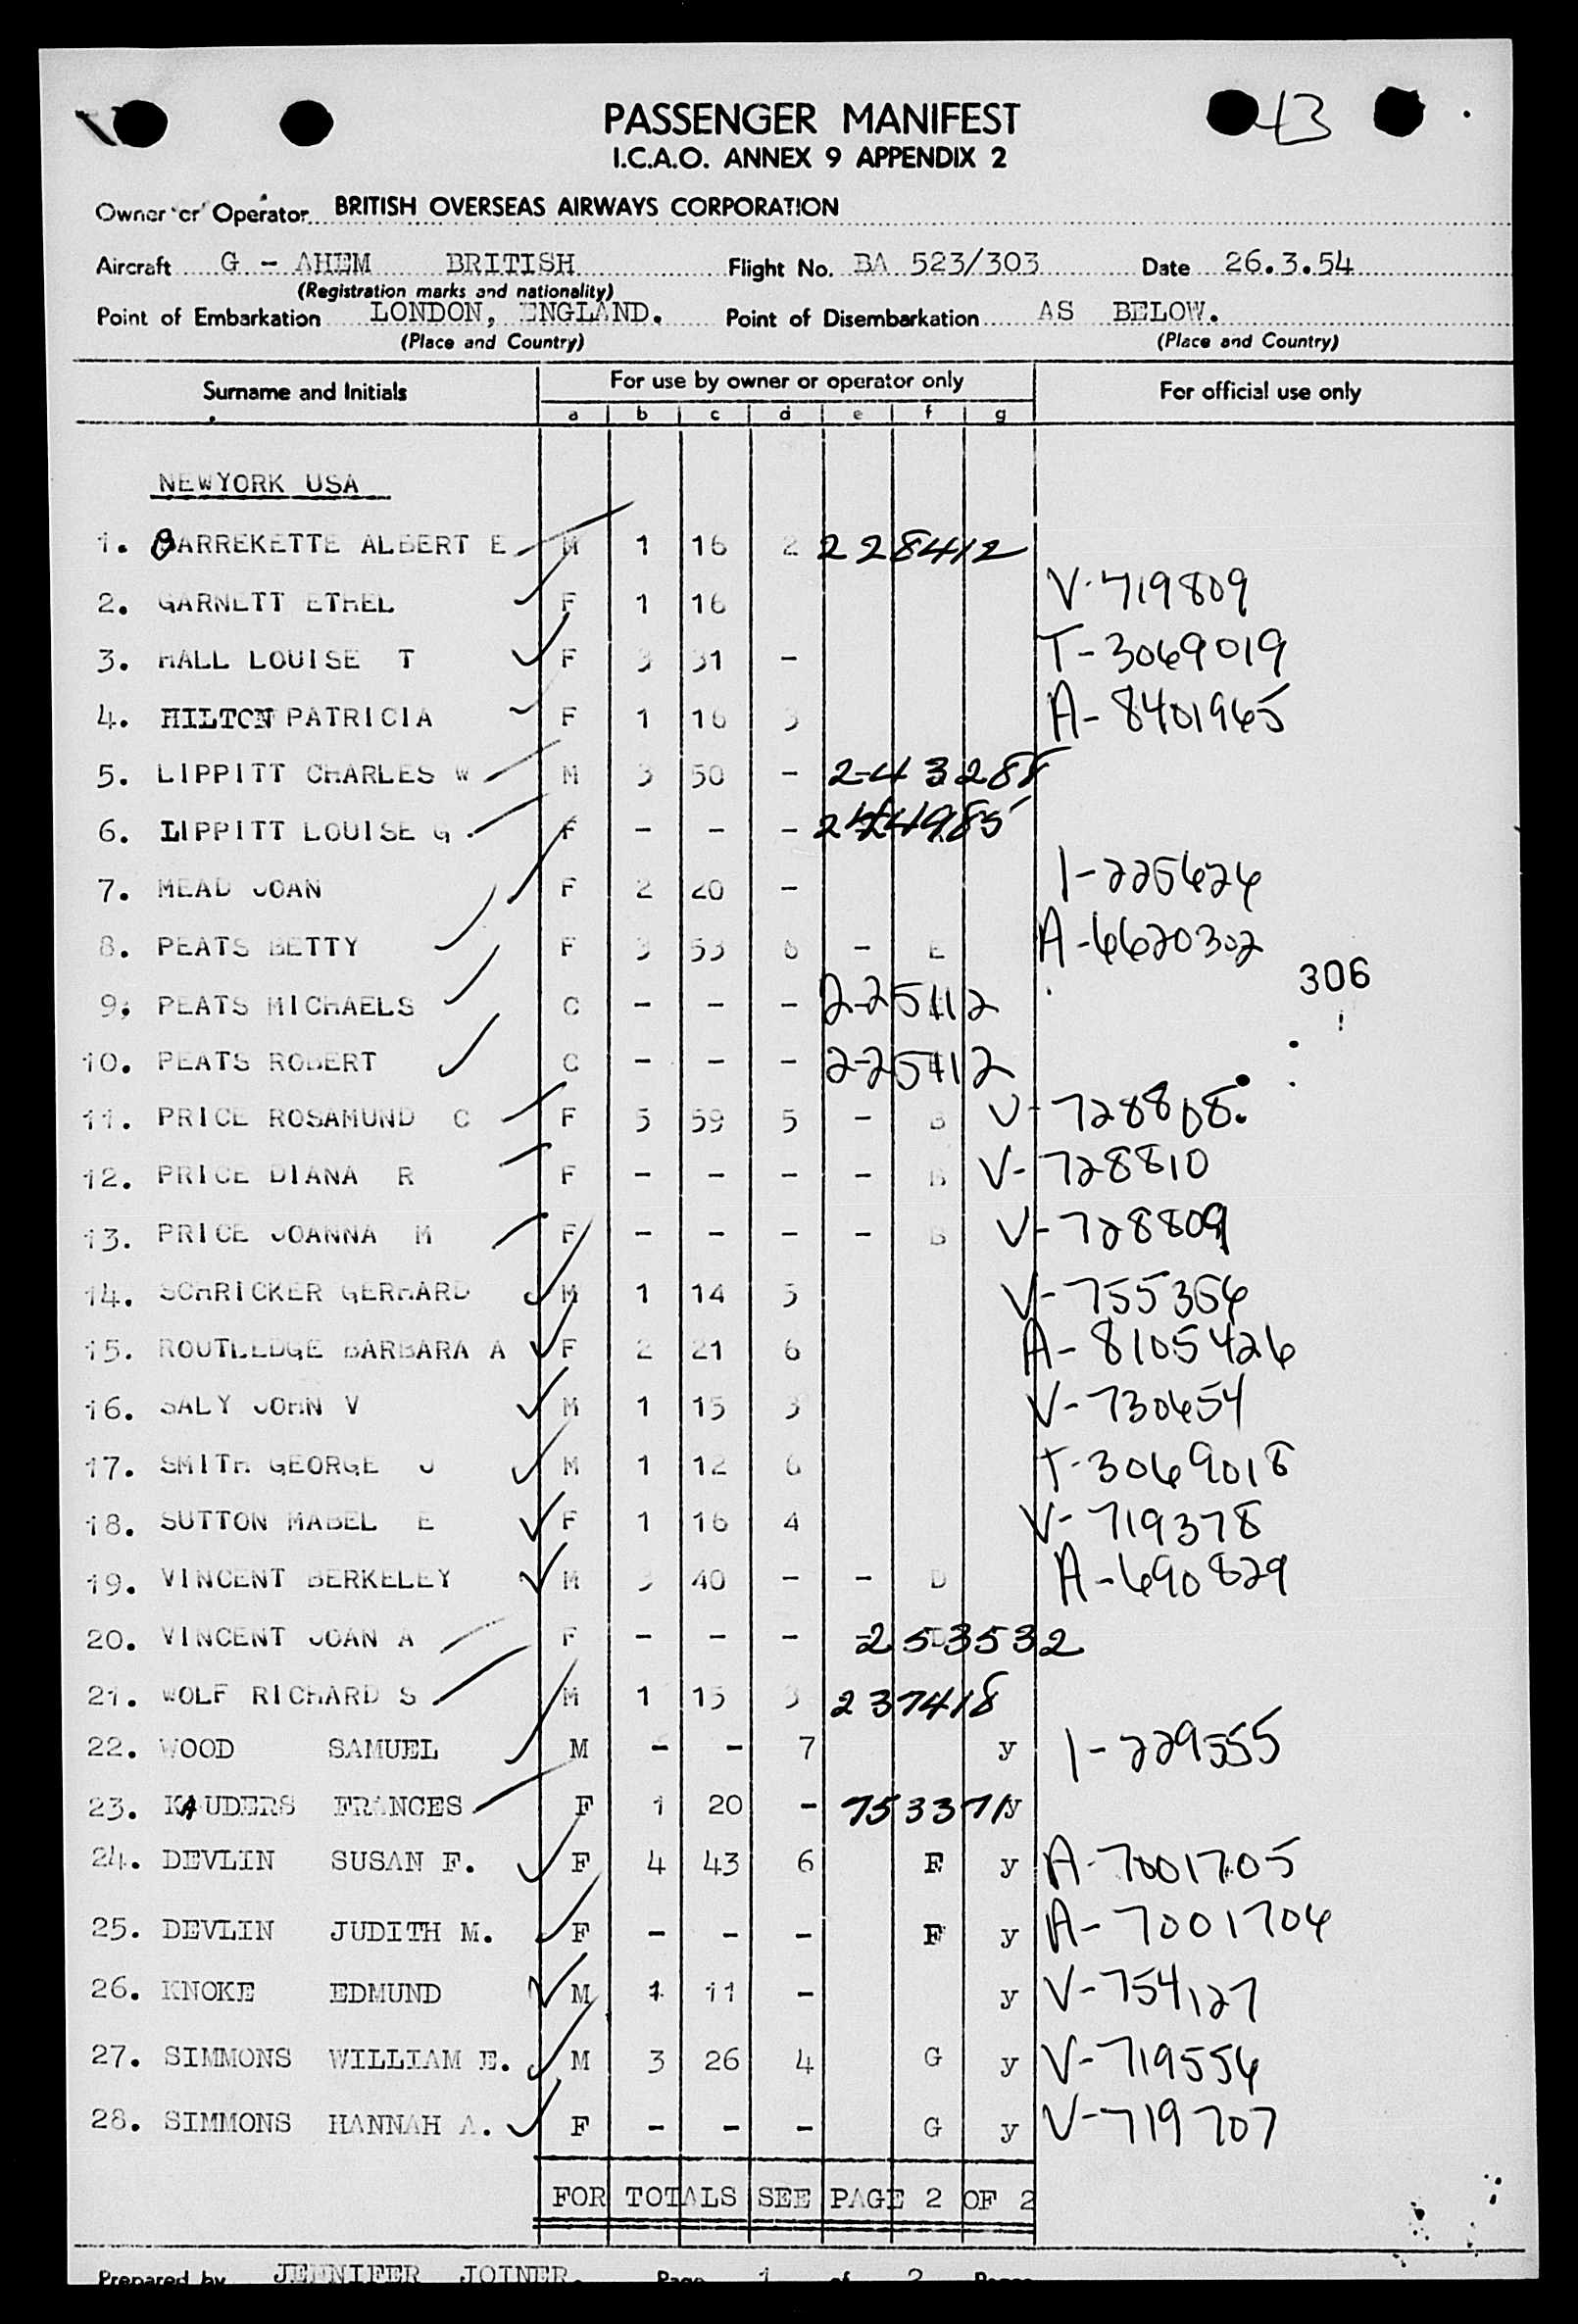 43
PASSENGER MANIFEST
I.C.A.O. ANNEX 9 APPENDIX 2
Owner or Operator BRITISH OVERSEAS AIRWAYS CORPORATION
Aircraft G - AHEM BRITISH Flight No. BA 523/303 Date 26.3.54
(Registration marks and nationality)
Point of Embarkation LONDON, ENGLAND. Point of Disembarkation AS BELOW.
(Place and Country) (Place and Country)
Surname and Initials For use by owner or operator only For official use only
a b c d e f g
NEWYORK USA
1. BARREKETTE ALBERT E M 1 16 2 228412
2. GARNETT ETHEL F 1 16 V-719809
3. HALL LOUISE T F 3 31 - T-3069019
4. HILTON PATRICIA F 1 16 3 A-8401965
5. LIPPITT CHARLES W M 3 50 - 243288
6. LIPPITT LOUISE G F - - -
7. MEAD JOAN F 2 20 - 1-225624
8. PEATS BETTY F 3 53 6 - E A-6620302
306
9. PEATS MICHAELS C - - - 225112
10. PEATS ROBERT C - - - 225112
11. PRICE ROSAMUND C F 5 59 5 - B V-728808
12. PRICE DIANA R F - - - - B V-728810
13. PRICE JOANNA M F - - - - B V-728809
14. SCHRICKER GERHARD M 1 14 5 V-755356
15. ROUTLEDGE BARBARA A F 2 21 6 A-8105426
16. SALY JOHN V M 1 15 3 V-730654
17. SMITH GEORGE J M 1 12 6 T-3069018
18. SUTTON MABEL E F 1 16 4 V-719378
19. VINCENT BERKELEY M 3 40 - - D A-690829
20. VINCENT JOAN A F - - - - D 253532
21. WOLF RICHARD S M 1 15 3 237418
22. WOOD SAMUEL M - - 7 y 1-229555
23. KAUDERS FRANCES F 1 20 - 753371 y
24. DEVLIN SUSAN F. F 4 43 6 F y A-7001705
25. DEVLIN JUDITH M. F - - - F y A-7001704
26. KNOKE EDMUND M 1 11 - y V-754127
27. SIMMONS WILLIAM E. M 3 26 4 G y V-719556
28. SIMMONS HANNAH A. F - - - G y V-719707
FOR TOTALS SEE PAGE 2 OF 2
Prepared by JENNIFER JOINER. Page 1 of 2 Pages